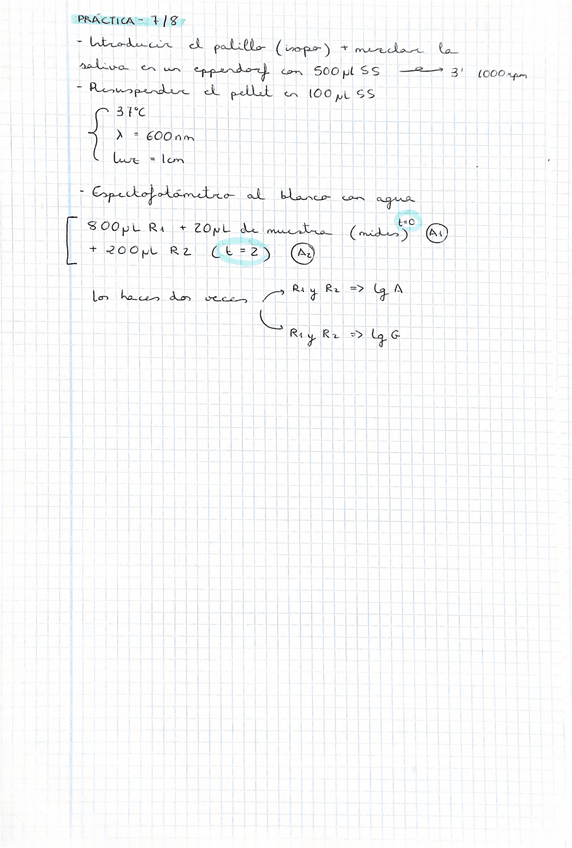 PRÁCTICA - 7/8
- Introducir el palillo (isopo) + mezclar la
saliva en un eppendorf con 500 µl SS → 3' 1000 rpm
- Resuspender el pellet en 100 µL SS
37°C
λ = 600nm
luz = 1cm
- Espectofotómetro al blanco con agua
800 µL R1 + 20 µL de muestra (mides) t=0 A1
+ 200 µL R2 (t = 2) A2
los haces dos veces
R1 y R2 => Ig A
R1 y R2 => Ig G